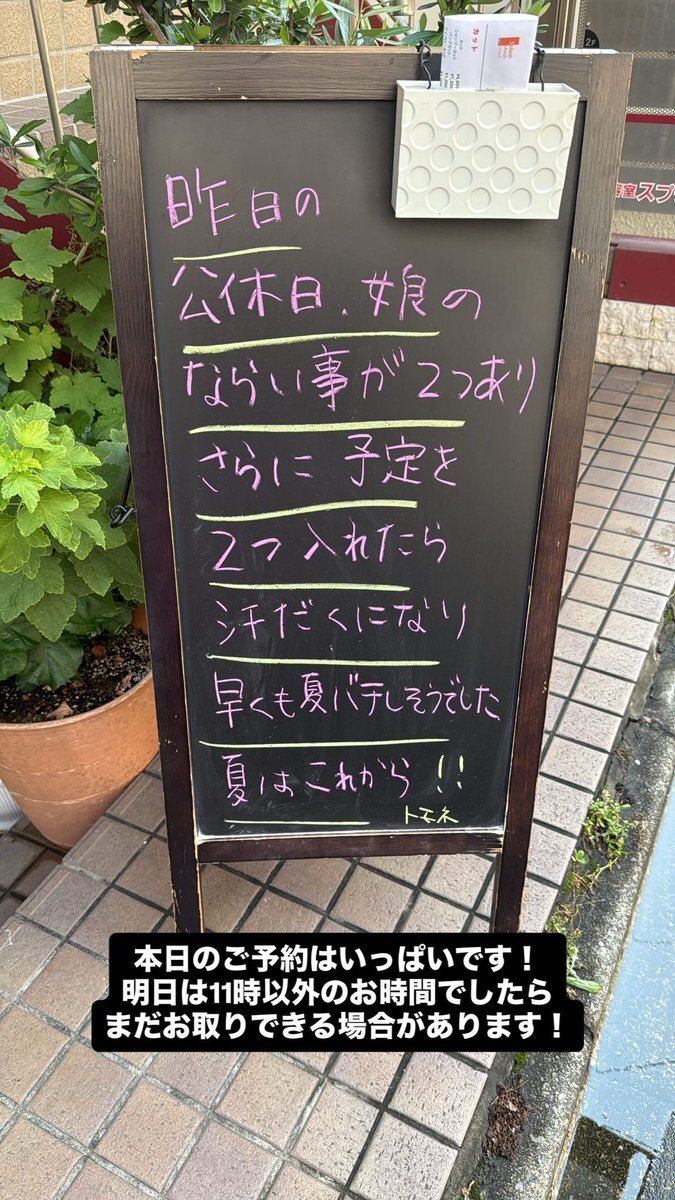 カット
2F
室スプ
昨日の
公休日、娘の
ならい事が2つあり
さらに予定を
2つ入れたら
汗だくになり
早くも夏バテしそうでした
夏はこれから!!
トモネ
本日のご予約はいっぱいです！
明日は11時以外のお時間でしたら
まだお取りできる場合があります！